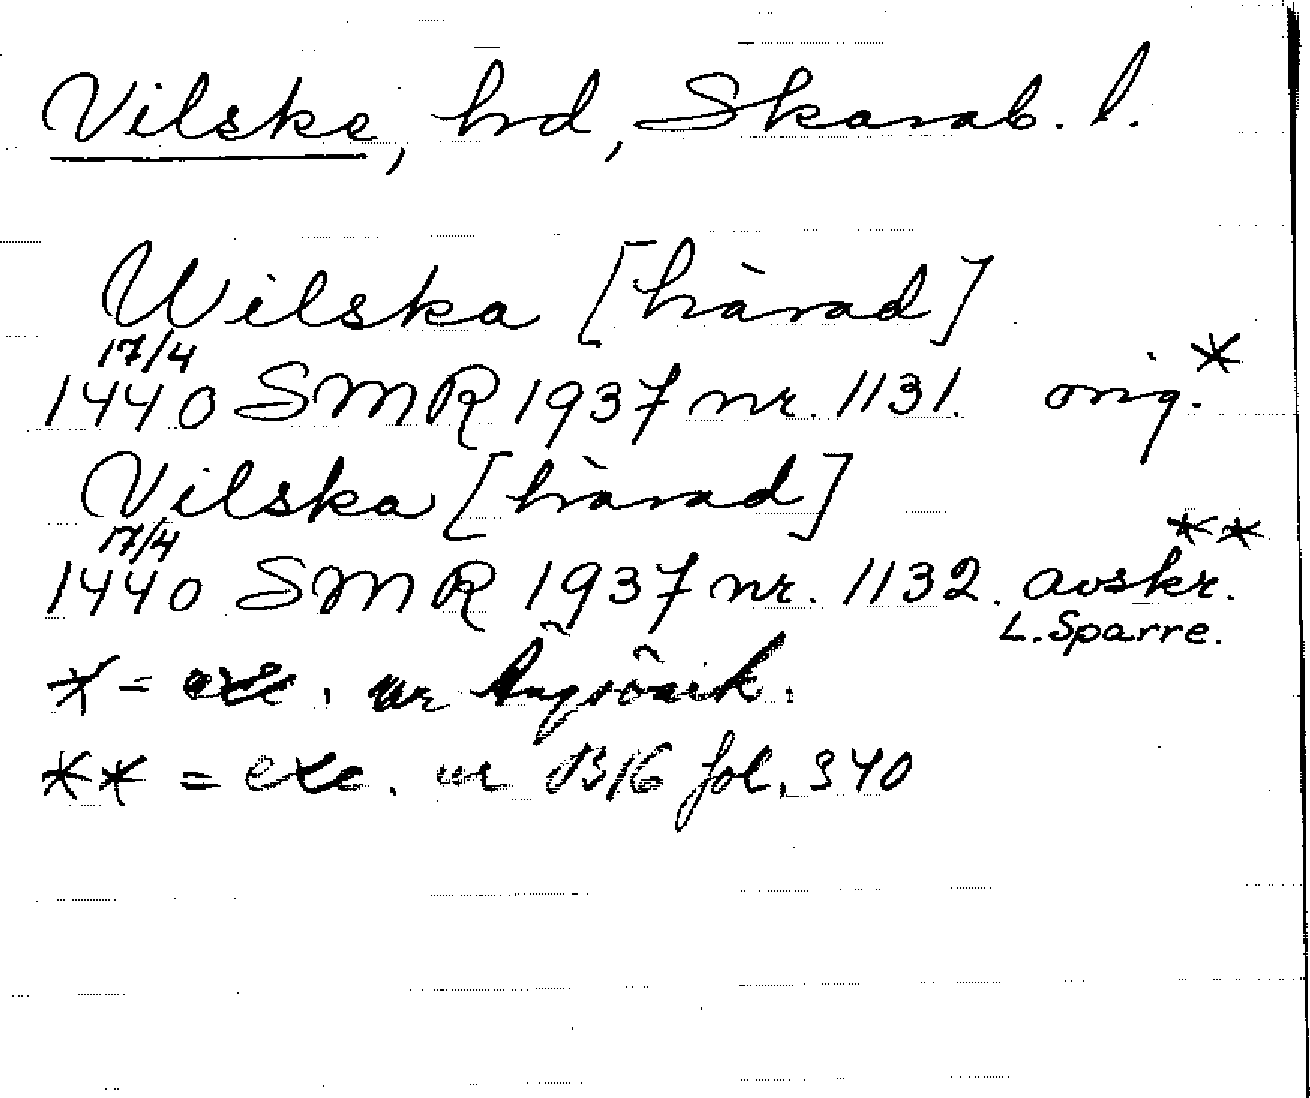 Vilske, hrd, Skarab. l.
Wilska [härad]
17/4
1440 SMR 1937 nr. 1131. orig.*
Vilska [härad]
17/4 **
1440 SMR 1937 nr. 1132. avskr.
L. Sparre.
* = exc. ur
** = exc. ur B16 fol. 340